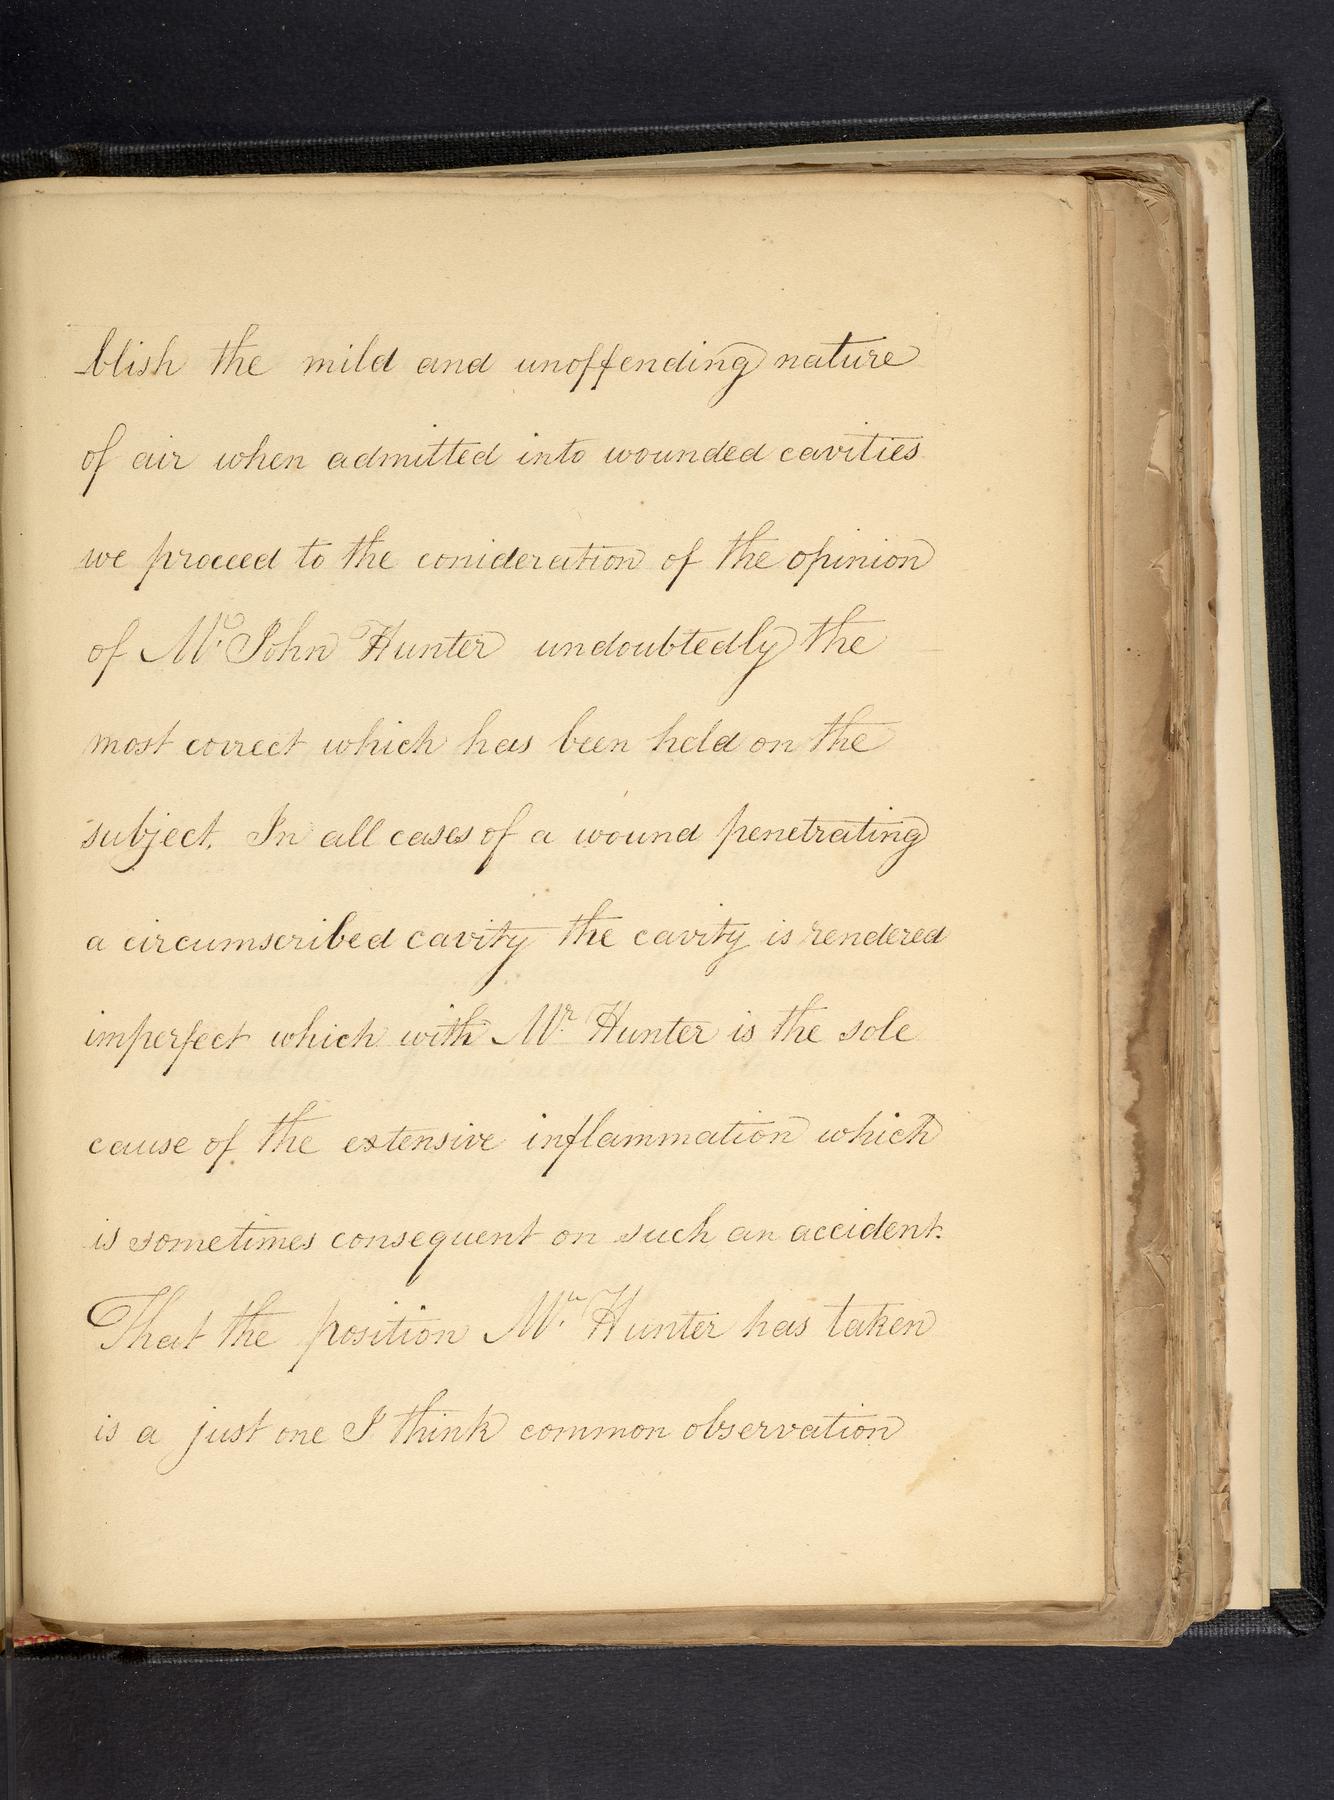 -blish the mild and unoffending nature
of air when admitted into wounded cavities
we proceed to the conideration of the opinion
of Mr. John Hunter undoubtedly the
most correct which has been held on the
subject. In all cases of a wound penetrating
a circumscribed cavity the cavity is rendered
imperfect which with Mr. Hunter is the sole
cause of the extensive inflammation which
is sometimes consequent on such an accident.
That the position Mr. Hunter has taken
is a just one I think common observation